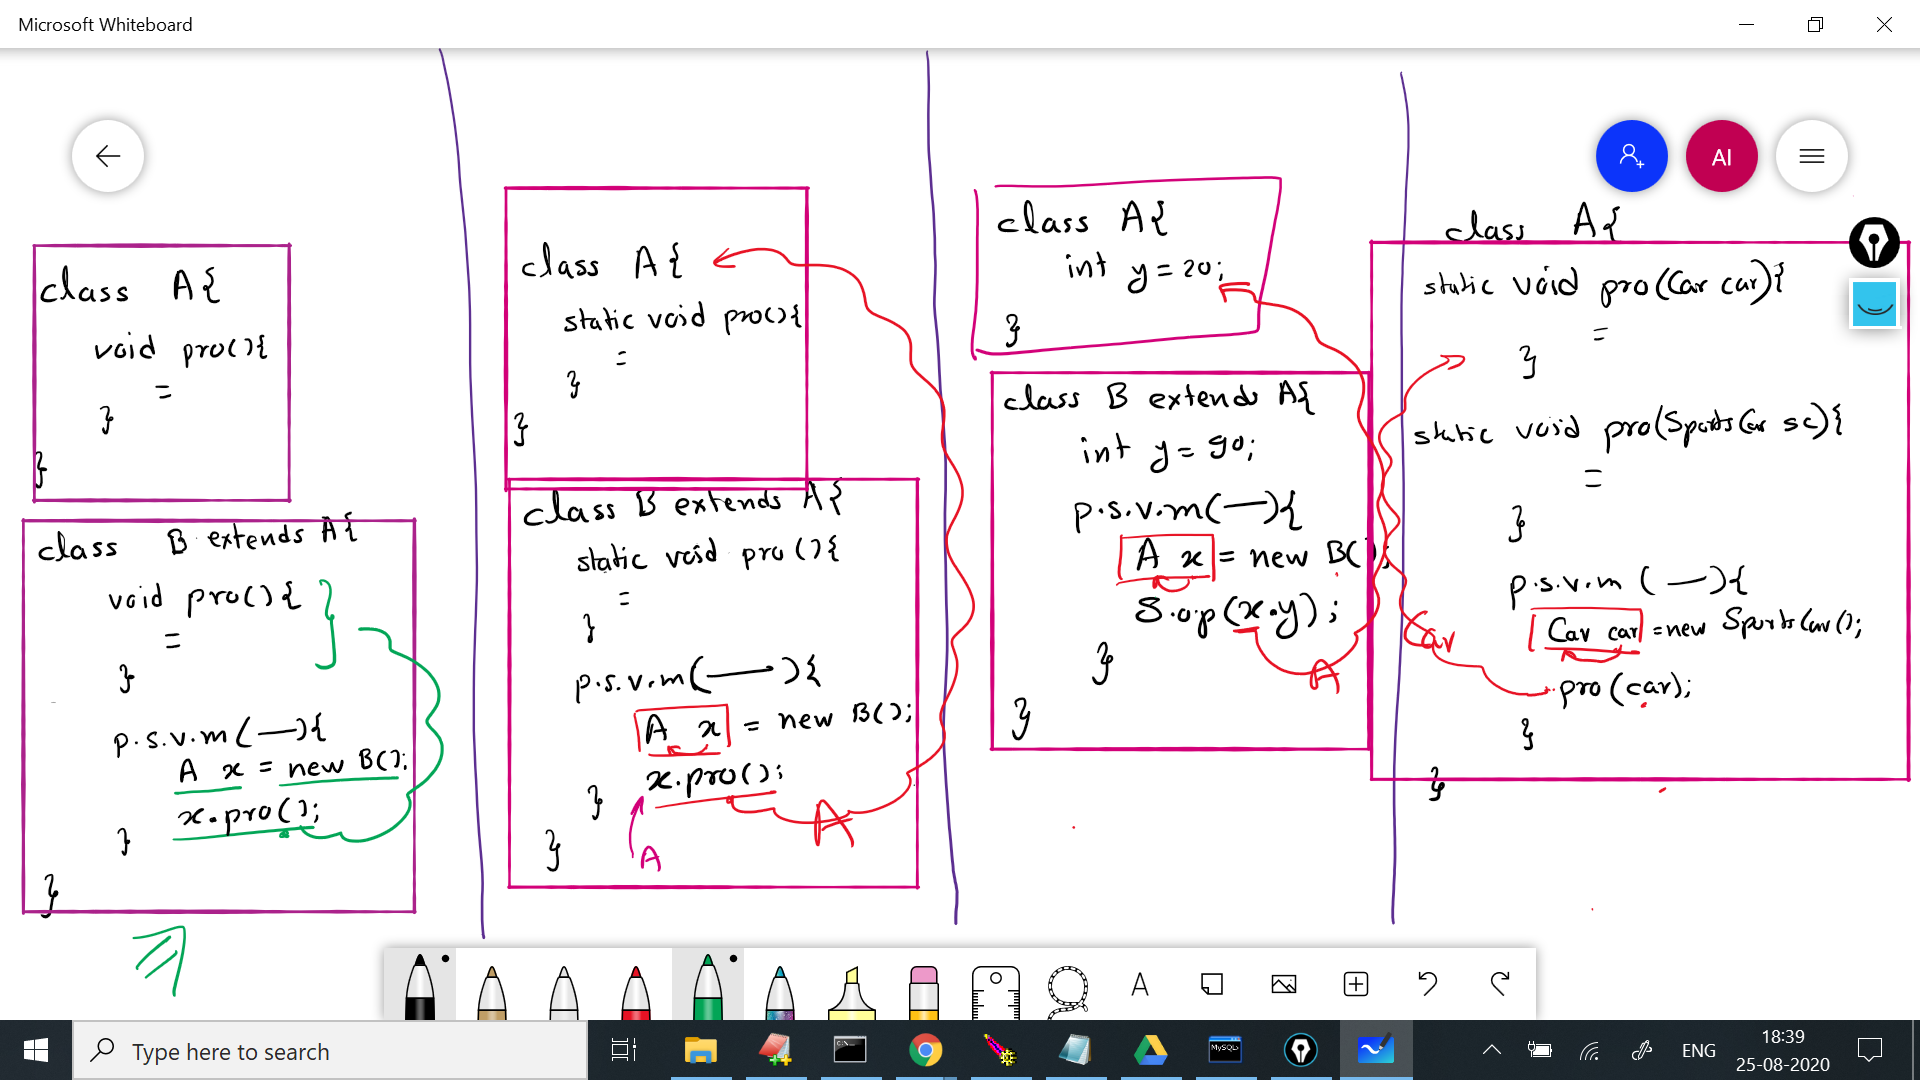 Microsoft Whiteboard
AI
class A{
void pro(){
=
}
}
class B extends A{
void pro(){
=
}
p.s.v.m(—){
A x = new B();
x.pro();
}
}
class A{
static void pro(){
=
}
}
class B extends A{
static void pro(){
=
}
p.s.v.m(—){
A x = new B();
x.pro();
}
}
A
A
class A{
int y = 20;
}
class B extends A{
int y = 90;
p.s.v.m(—){
A x = new B();
S.o.p(x.y);
}
}
A
class A{
static void pro(Car car){
=
}
static void pro(SportsCar sc){
=
}
p.s.v.m(—){
Car car = new SportsCar();
pro(car);
}
}
Car
A
Type here to search
MySQL
ENG
18:39
25-08-2020